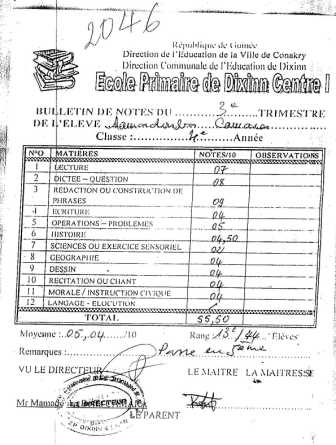 2046
République de Guinée
Direction de l'Education de la Ville de Conakry
Direction Communale de l'Education de Dixinn
Ecole Primaire de Dixinn Centre I
BULLETIN DE NOTES DU 2e TRIMESTRE
DE L'ELEVE Camara
Classe : 4e Année
N°O MATIÈRES NOTES/10 OBSERVATIONS
1 LECTURE 07
2 DICTEE – QUESTION 08
3 REDACTION OU CONSTRUCTION DE PHRASES 09
4 ECRITURE 04
5 OPERATIONS – PROBLEMES 05
6 HISTOIRE 04,50
7 SCIENCES OU EXERCICE SENSORIEL 02
8 GEOGRAPHIE 04
9 DESSIN 04
10 RECITATION OU CHANT 04
11 MORALE / INSTRUCTION CIVIQUE 04
12 LANGAGE - ELOCUTION
TOTAL 55,50
Moyenne : 05,04 /10 Rang 13e/44 Elèves
Remarques : Passe en
VU LE DIRECTEUR LE MAITRE LA MAITRESSE
Mr Mamad LE DIRECTEUR
LE PARENT